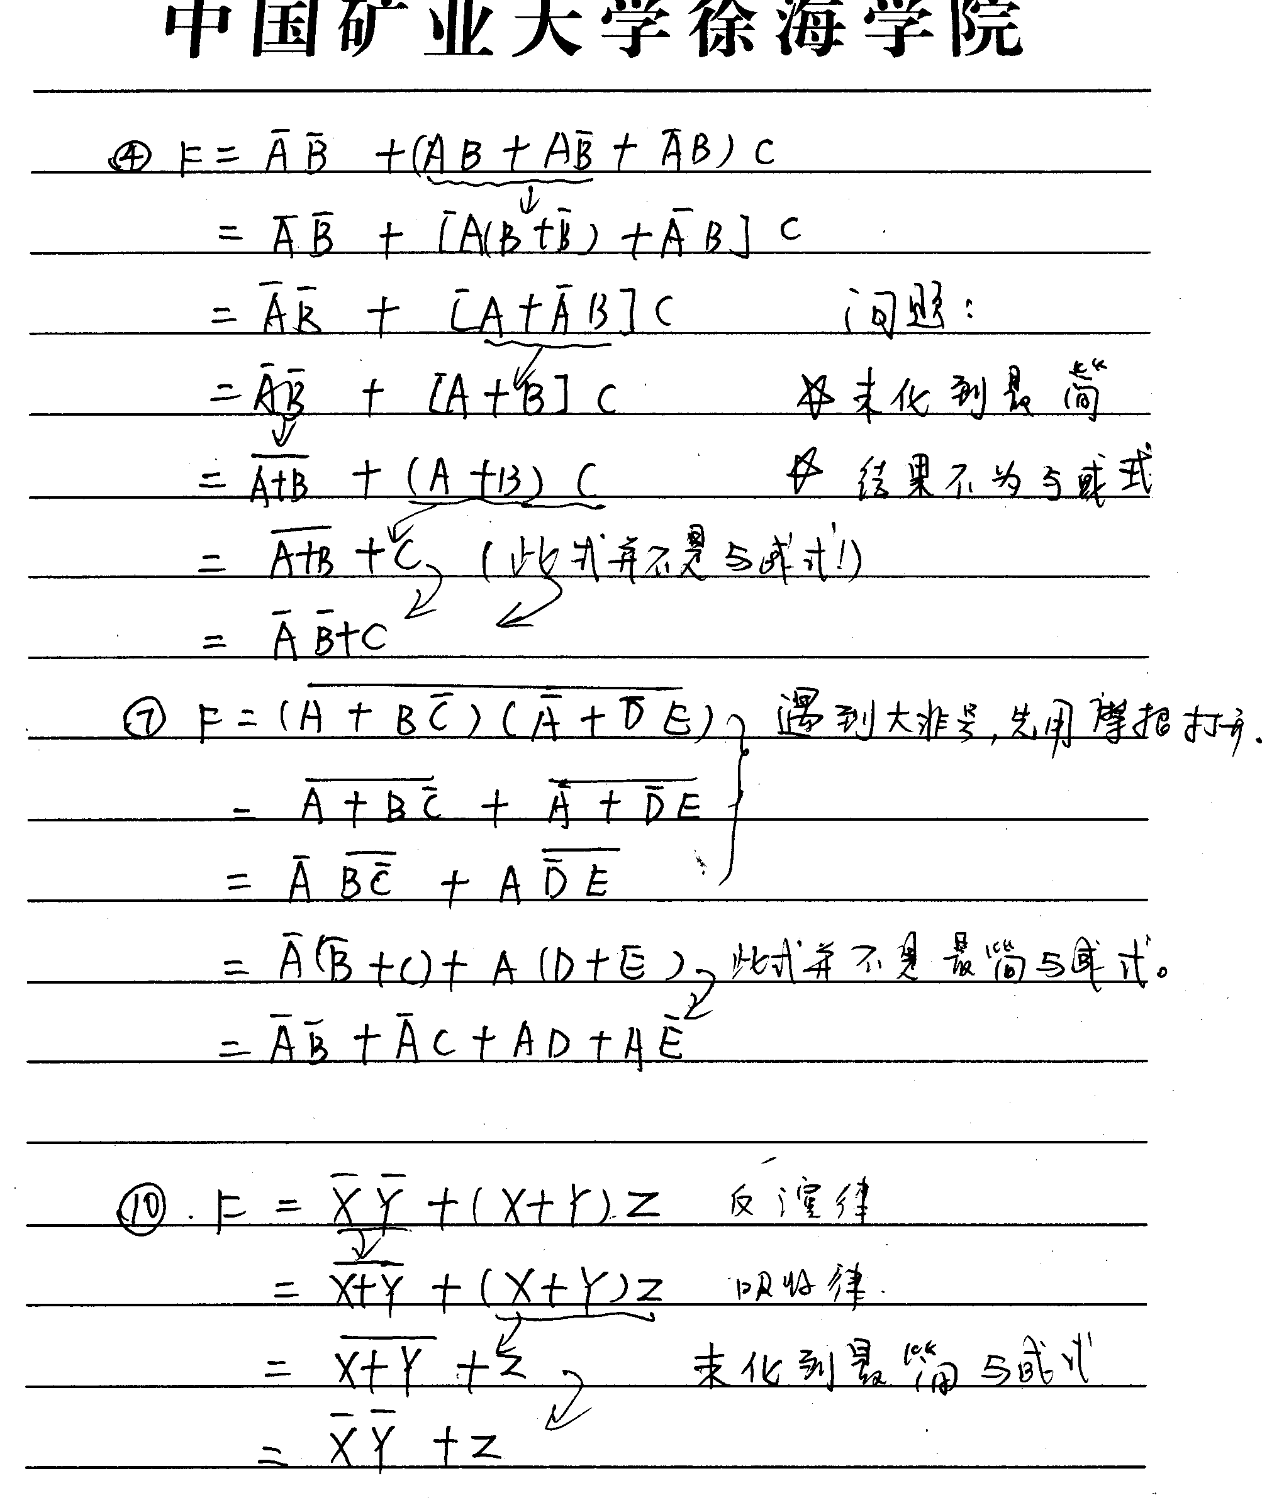 中国矿业大学徐海学院
④ F = A̅ B̅ + (AB + AB̅ + A̅B) C
= A̅ B̅ + [A(B+B̅) + A̅ B] C
= A̅ B̅ + [A + A̅ B] C 问题:
= A̅ B̅ + [A + B] C ☆ 未化到最简
= \overline{A+B} + (A+B) C ☆ 结果不为与或式
= \overline{A+B} + C (此式并不是与或式!)
= A̅ B̅ + C
⑦ F = \overline{(A + B C̅)(A̅ + D̅ E)} 遇到大非号,先用摩根打开.
= \overline{A + B C̅} + \overline{A̅ + D̅ E}
= A̅ \overline{B C̅} + A \overline{D̅ E}
= A̅(B̅ + C) + A(D + E̅) 此式并不是最简与或式。
= A̅ B̅ + A̅ C + AD + A E̅
⑩. F = X̅ Y̅ + (X+Y) Z 反演律
= \overline{X+Y} + (X+Y) Z 吸收律.
= \overline{X+Y} + Z 未化到最简与或式
= X̅ Y̅ + Z